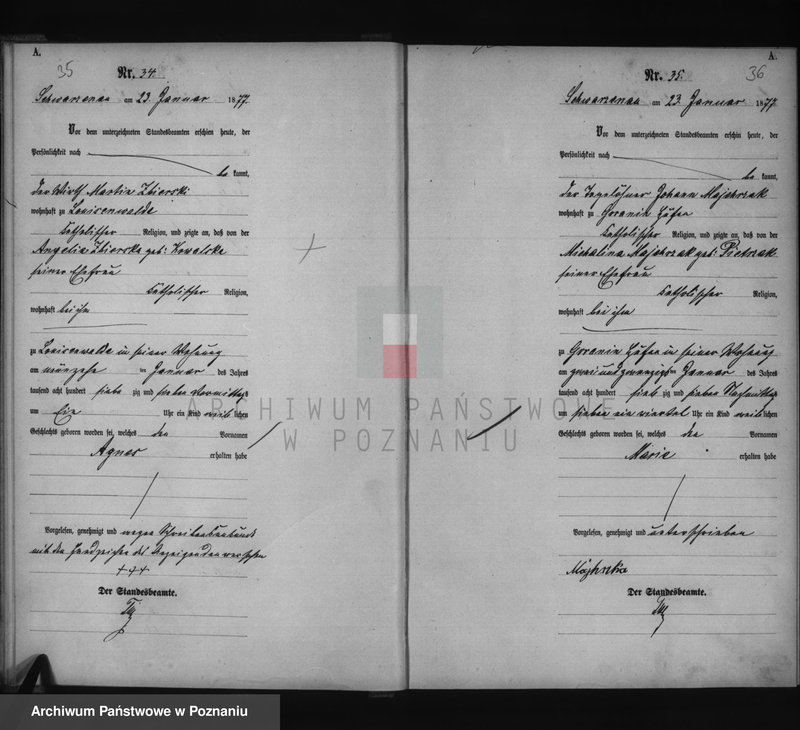 A.
35
Nr. 34.
Schwarzenau am 23. Januar 1877
Vor dem unterzeichneten Standesbeamten erschien heute, der
Persönlichkeit nach
be kannt,
der Wirth Martin Zbierski
wohnhaft zu Louisenwalde
katholischer Religion, und zeigte an, daß von der
Angelia Zbierska geb: Kowalska
seiner Ehefrau
katholischer Religion,
wohnhaft bei ihm
zu Louisenwalde in seiner Wohnung
am des Jahres
Januar
tausend acht hundert siebe zig und sieben Vormittags
um Ein Uhr ein Kind weib lichen
Geschlechts geboren worden sei, welches den Vornamen
Agnes erhalten habe
Vorgelesen, genehmigt und wegen
mit den Handzeichen des versehen
+++
Der Standesbeamte.
A.
36
Nr. 35.
Schwarzenau am 23. Januar 1877
Vor dem unterzeichneten Standesbeamten erschien heute, der
Persönlichkeit nach
be kannt,
der Tagelöhner Johann Majchrzak
wohnhaft zu Goranin
katholischer Religion, und zeigte an, daß von der
Michalina Majchrzak geb: Pietrzak
seiner Ehefrau
katholischer Religion,
wohnhaft bei ihm
zu Goranin in seiner Wohnung
am zwei und zwanzigsten Januar des Jahres
tausend acht hundert sieb zig und sieben Nachmittags
um sieben ein viertel Uhr ein Kind weib lichen
Geschlechts geboren worden sei, welches den Vornamen
Marie erhalten habe
Vorgelesen, genehmigt und unterschrieben
Der Standesbeamte.
ARCHIWUM PAŃSTWOWE
W POZNANIU
Archiwum Państwowe w Poznaniu